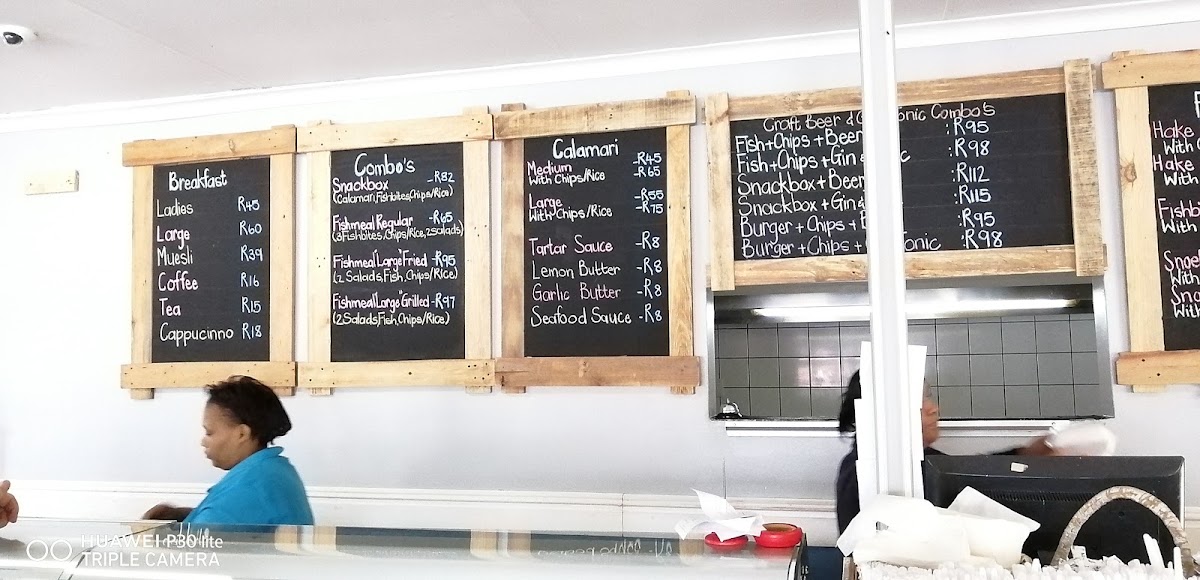 Breakfast
Ladies R45
Large R60
Muesli R39
Coffee R16
Tea R15
Cappucinno R18
Combo's
Snackbox -R82
(Calamari,Fishbites,Chips/Rice)
Fishmeal Regular -R65
(3Fishbites,Chips/Rice,2Salads)
Fishmeal"Large"Fried -R95
(2 Salads,Fish,Chips/Rice)
Fishmeal"Large"Grilled -R97
(2Salads,Fish,Chips/Rice)
Calamari
Medium -R45
With Chips/Rice -R65
Large -R55
With Chips/Rice -R75
Tartar Sauce -R8
Lemon Butter -R8
Garlic Butter -R8
Seafood Sauce -R8
Craft Beer & Combo's
Fish+Chips+Beer :R95
Fish+Chips+Gin & :R98
Snackbox+Beer :R112
Snackbox+Gin :R115
Burger+Chips+ :R95
Burger+Chips+ Tonic :R98
Hake
With
Hake
With
With
With
With
HUAWEI P30 lite
TRIPLE CAMERA